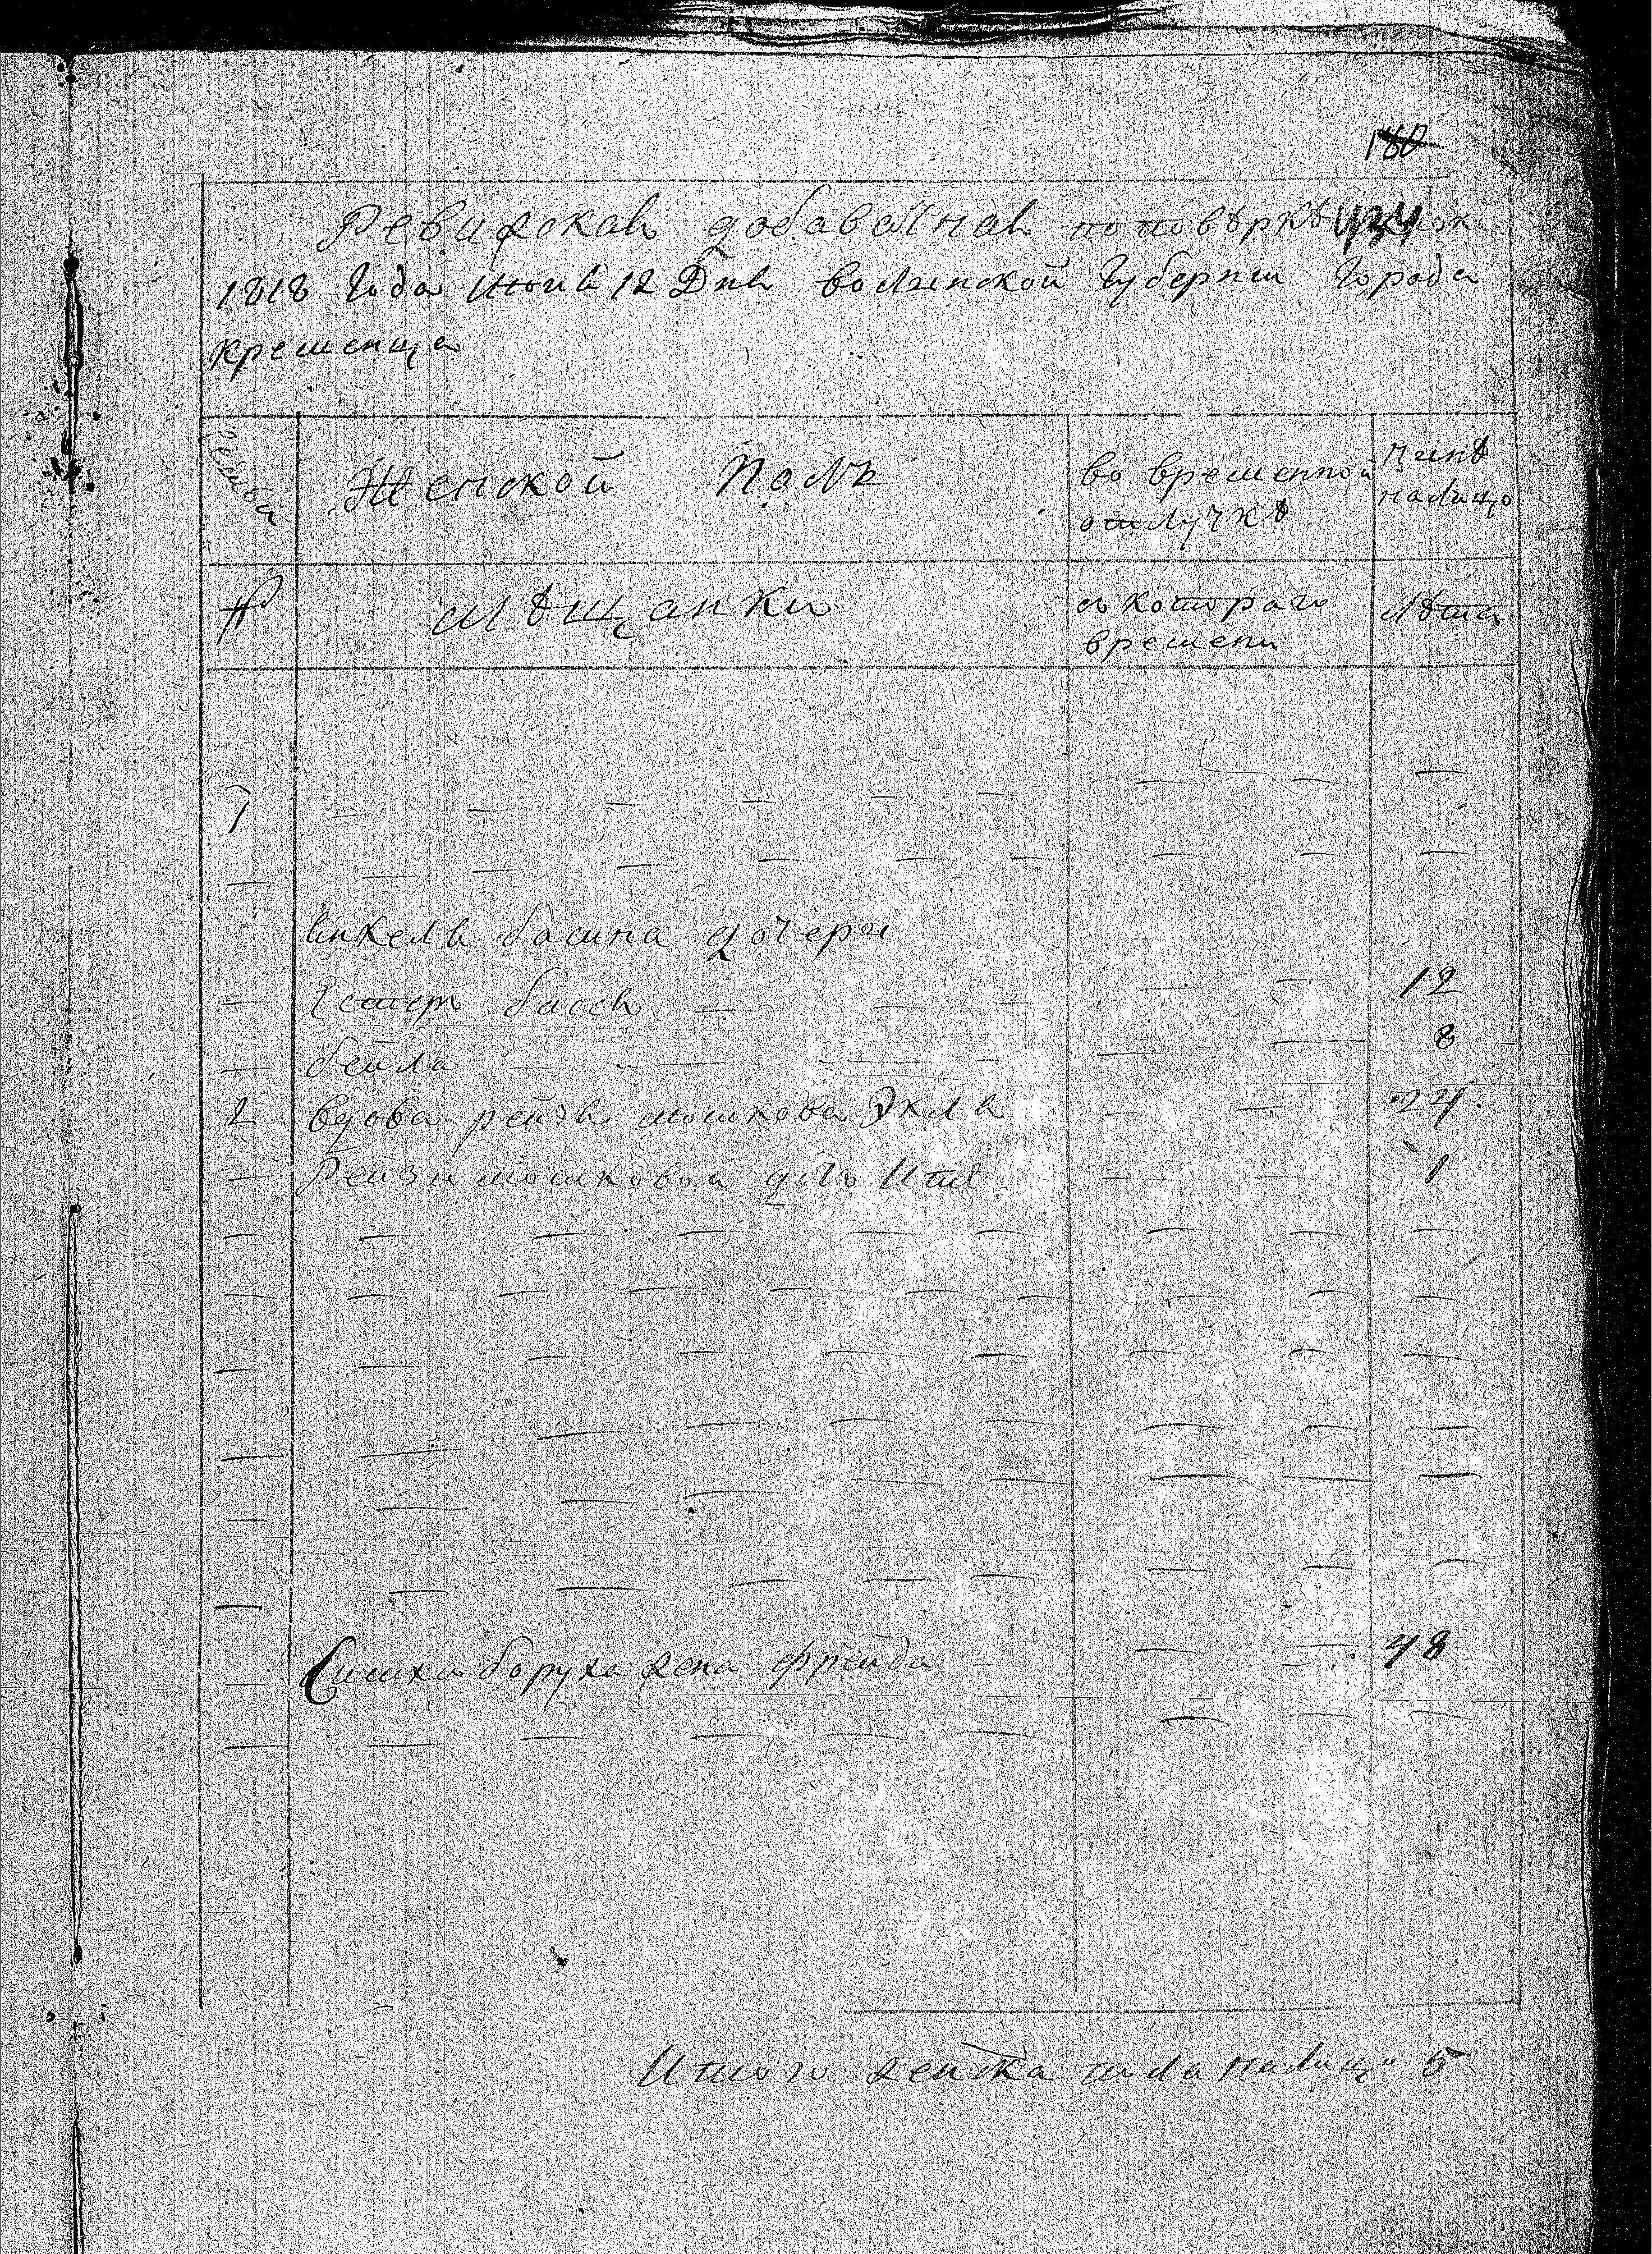 180
Ревижская добавочная по повѣркѣ 434
1818 Года Июня 12 Дня волынской Губернии Города
кременца
Женской Полъ
во временной отлучкѣ
нынѣ налицо
№
мѣщанки
съ котораго времени
лѣта
1
— — — — — — — — —
басина дочери
— Естеръ бася — — — — — 12
— бейла — — — — — — 8
2 вдова рейзя мошкова Экля — — 24
— Рейзи мошковой дочь — — 1
— — — — — — — — —
— — — — — — — — —
— — — — — — — — —
— — — — — — — — —
— — — — — — — — —
— — — — — — — — —
— Симха боруха жена фрейда — — — 48
— — — — — — — — —
Итого женска пола налицо 5